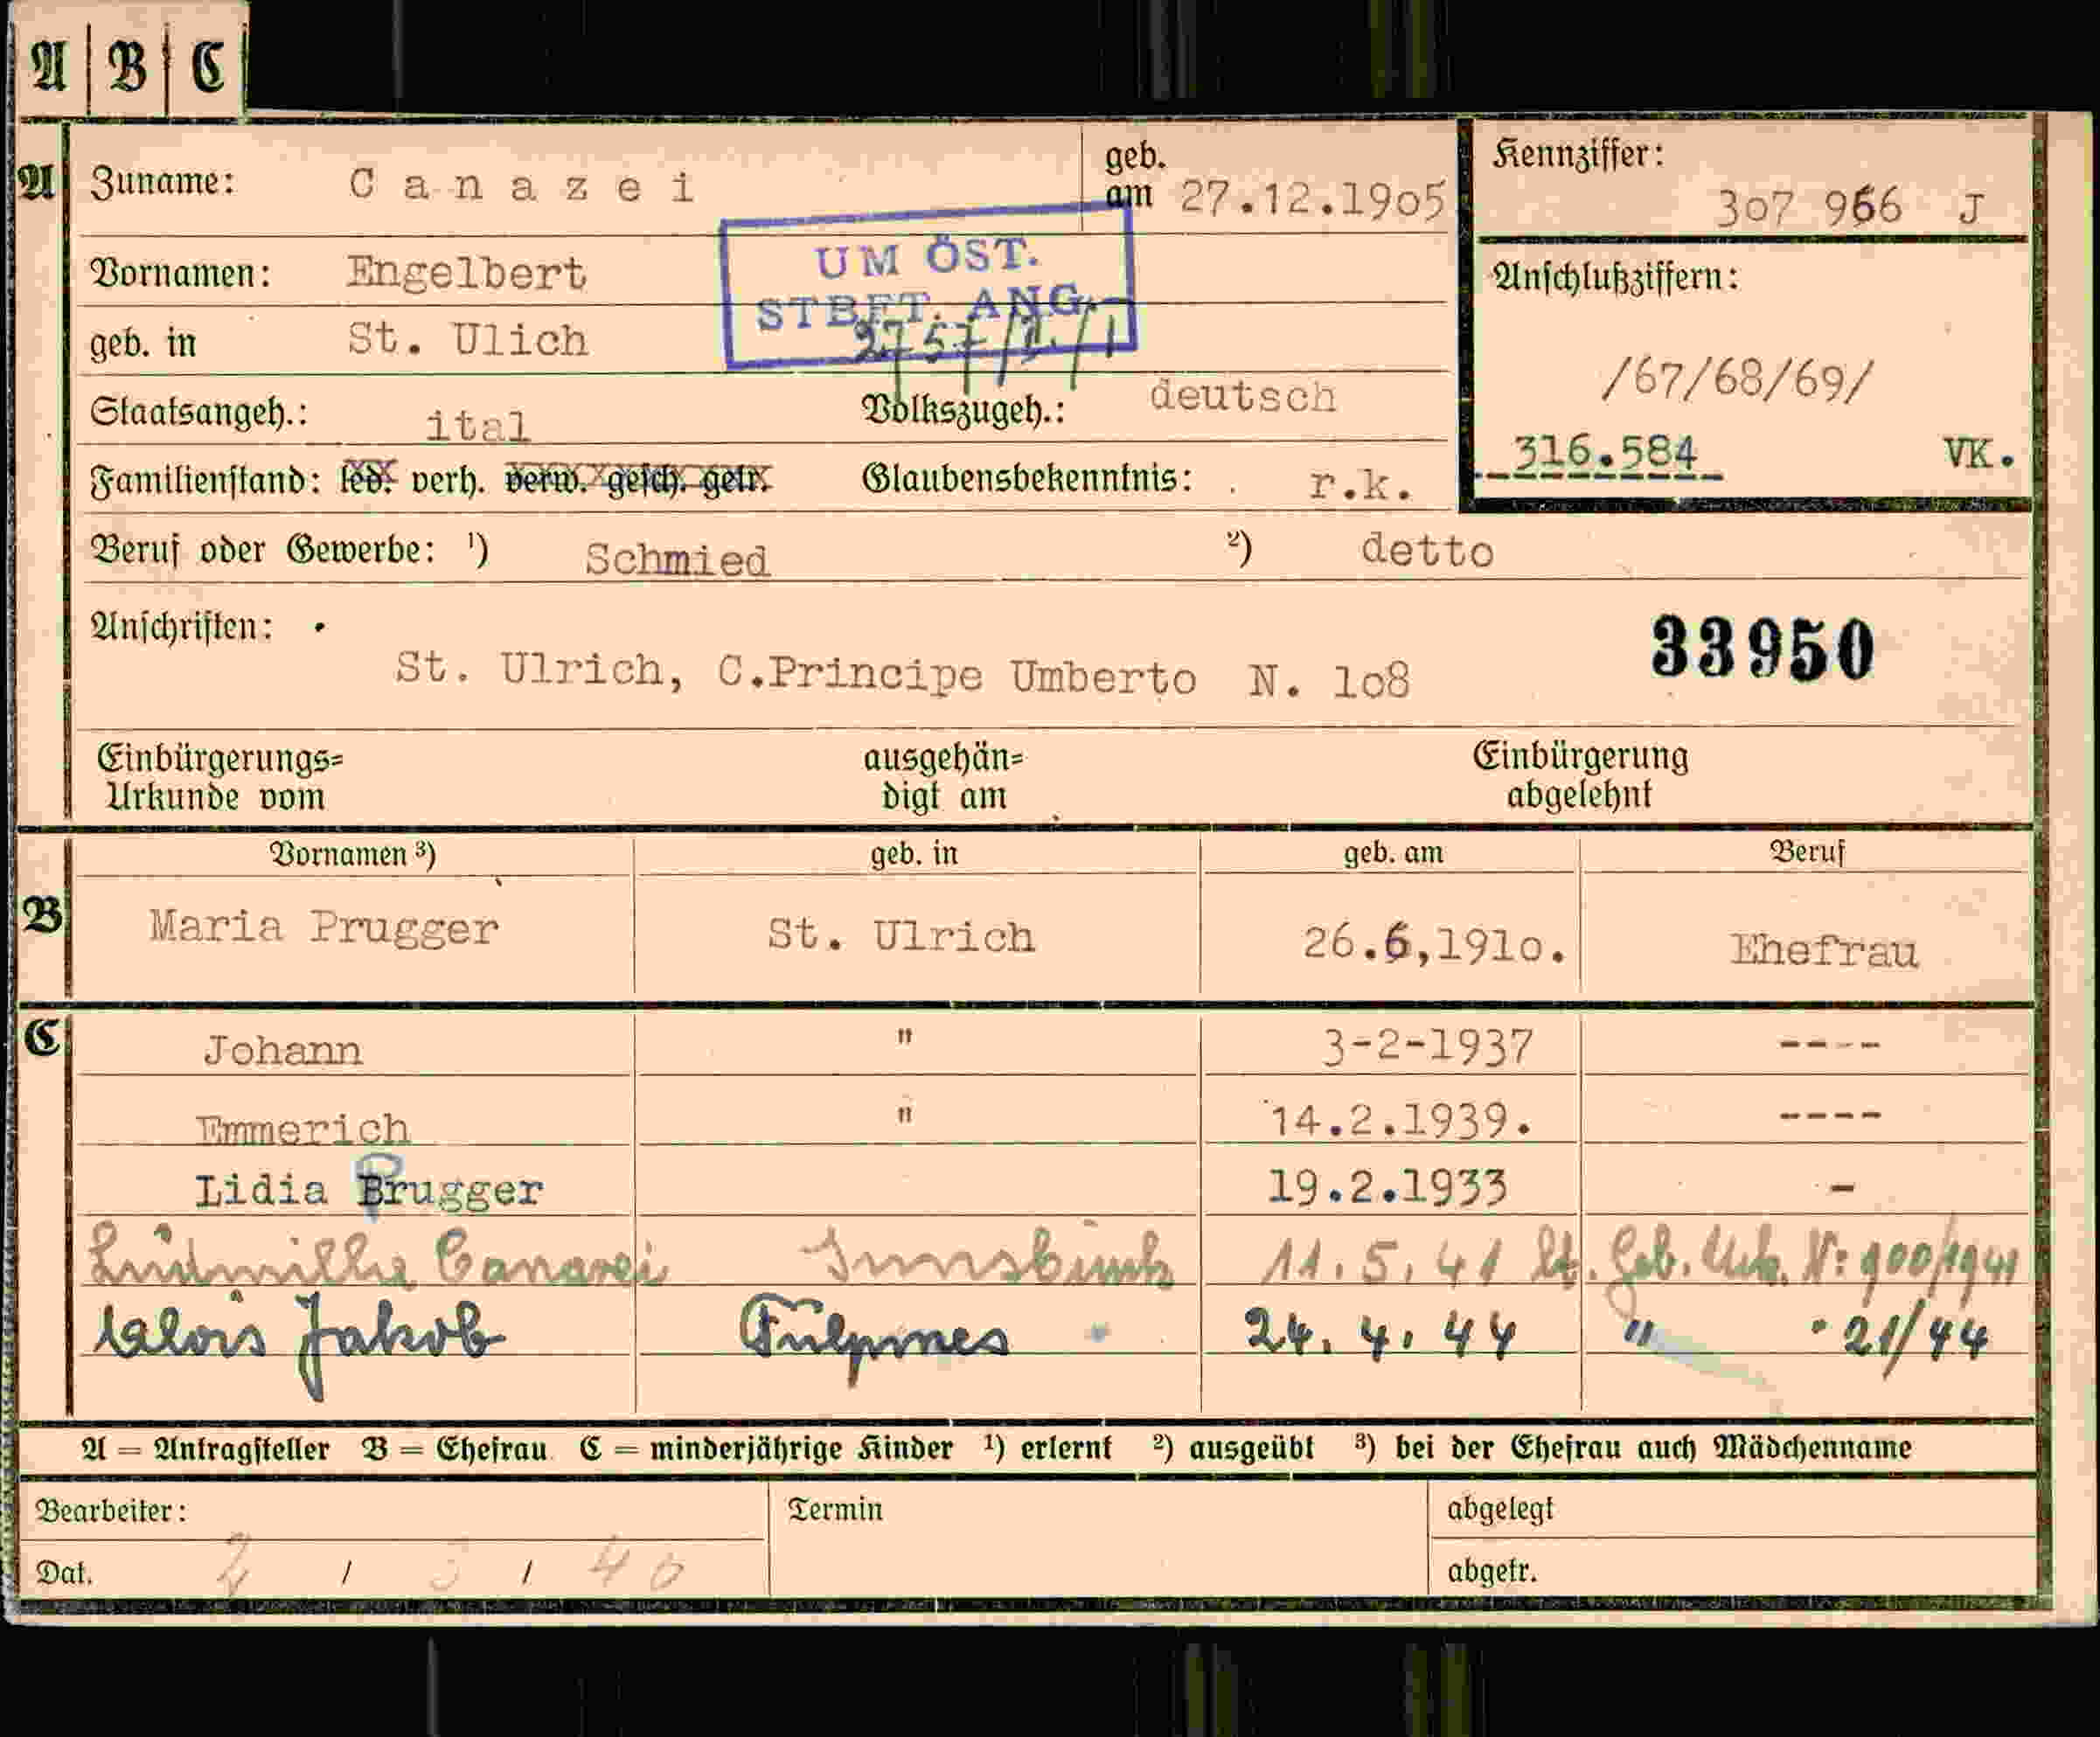 A | B | C
A Zuname: Canazei geb. am 27.12.19o5 Kennziffer: 3o7 966 J
UM ÖST. STBFT. ANG.
Vornamen: Engelbert Anschlußziffern:
geb. in St. Ulich /67/68/69/
Staatsangeh.: ital Volkszugeh.: deutsch
316.584 VK.
Familienstand: led. verh. verw. gesch. getr. Glaubensbekenntnis: r.k.
Beruf oder Gewerbe: ¹) Schmied ²) detto
Anschriften: 33950
St. Ulrich, C.Principe Umberto N. 1o8
Einbürgerungs= ausgehän= Einbürgerung
Urkunde vom digt am abgelehnt
Vornamen ³) geb. in geb. am Beruf
B Maria Prugger St. Ulrich 26.6,191o. Ehefrau
C Johann " 3-2-1937 ----
Emmerich " 14.2.1939. ----
Lidia Prugger 19.2.1933 -
Ludmilla Canazei Innsbruck 11.5.41 lt. Geb. Urk. Nr: 900/1941
Alois Jakob Fulpmes 24.4.44 " " 21/44
A = Antragsteller B = Ehefrau C = minderjährige Kinder ¹) erlernt ²) ausgeübt ³) bei der Ehefrau auch Mädchenname
Bearbeiter: Termin abgelegt
Dat. 2 / 3 / 40 abgetr.